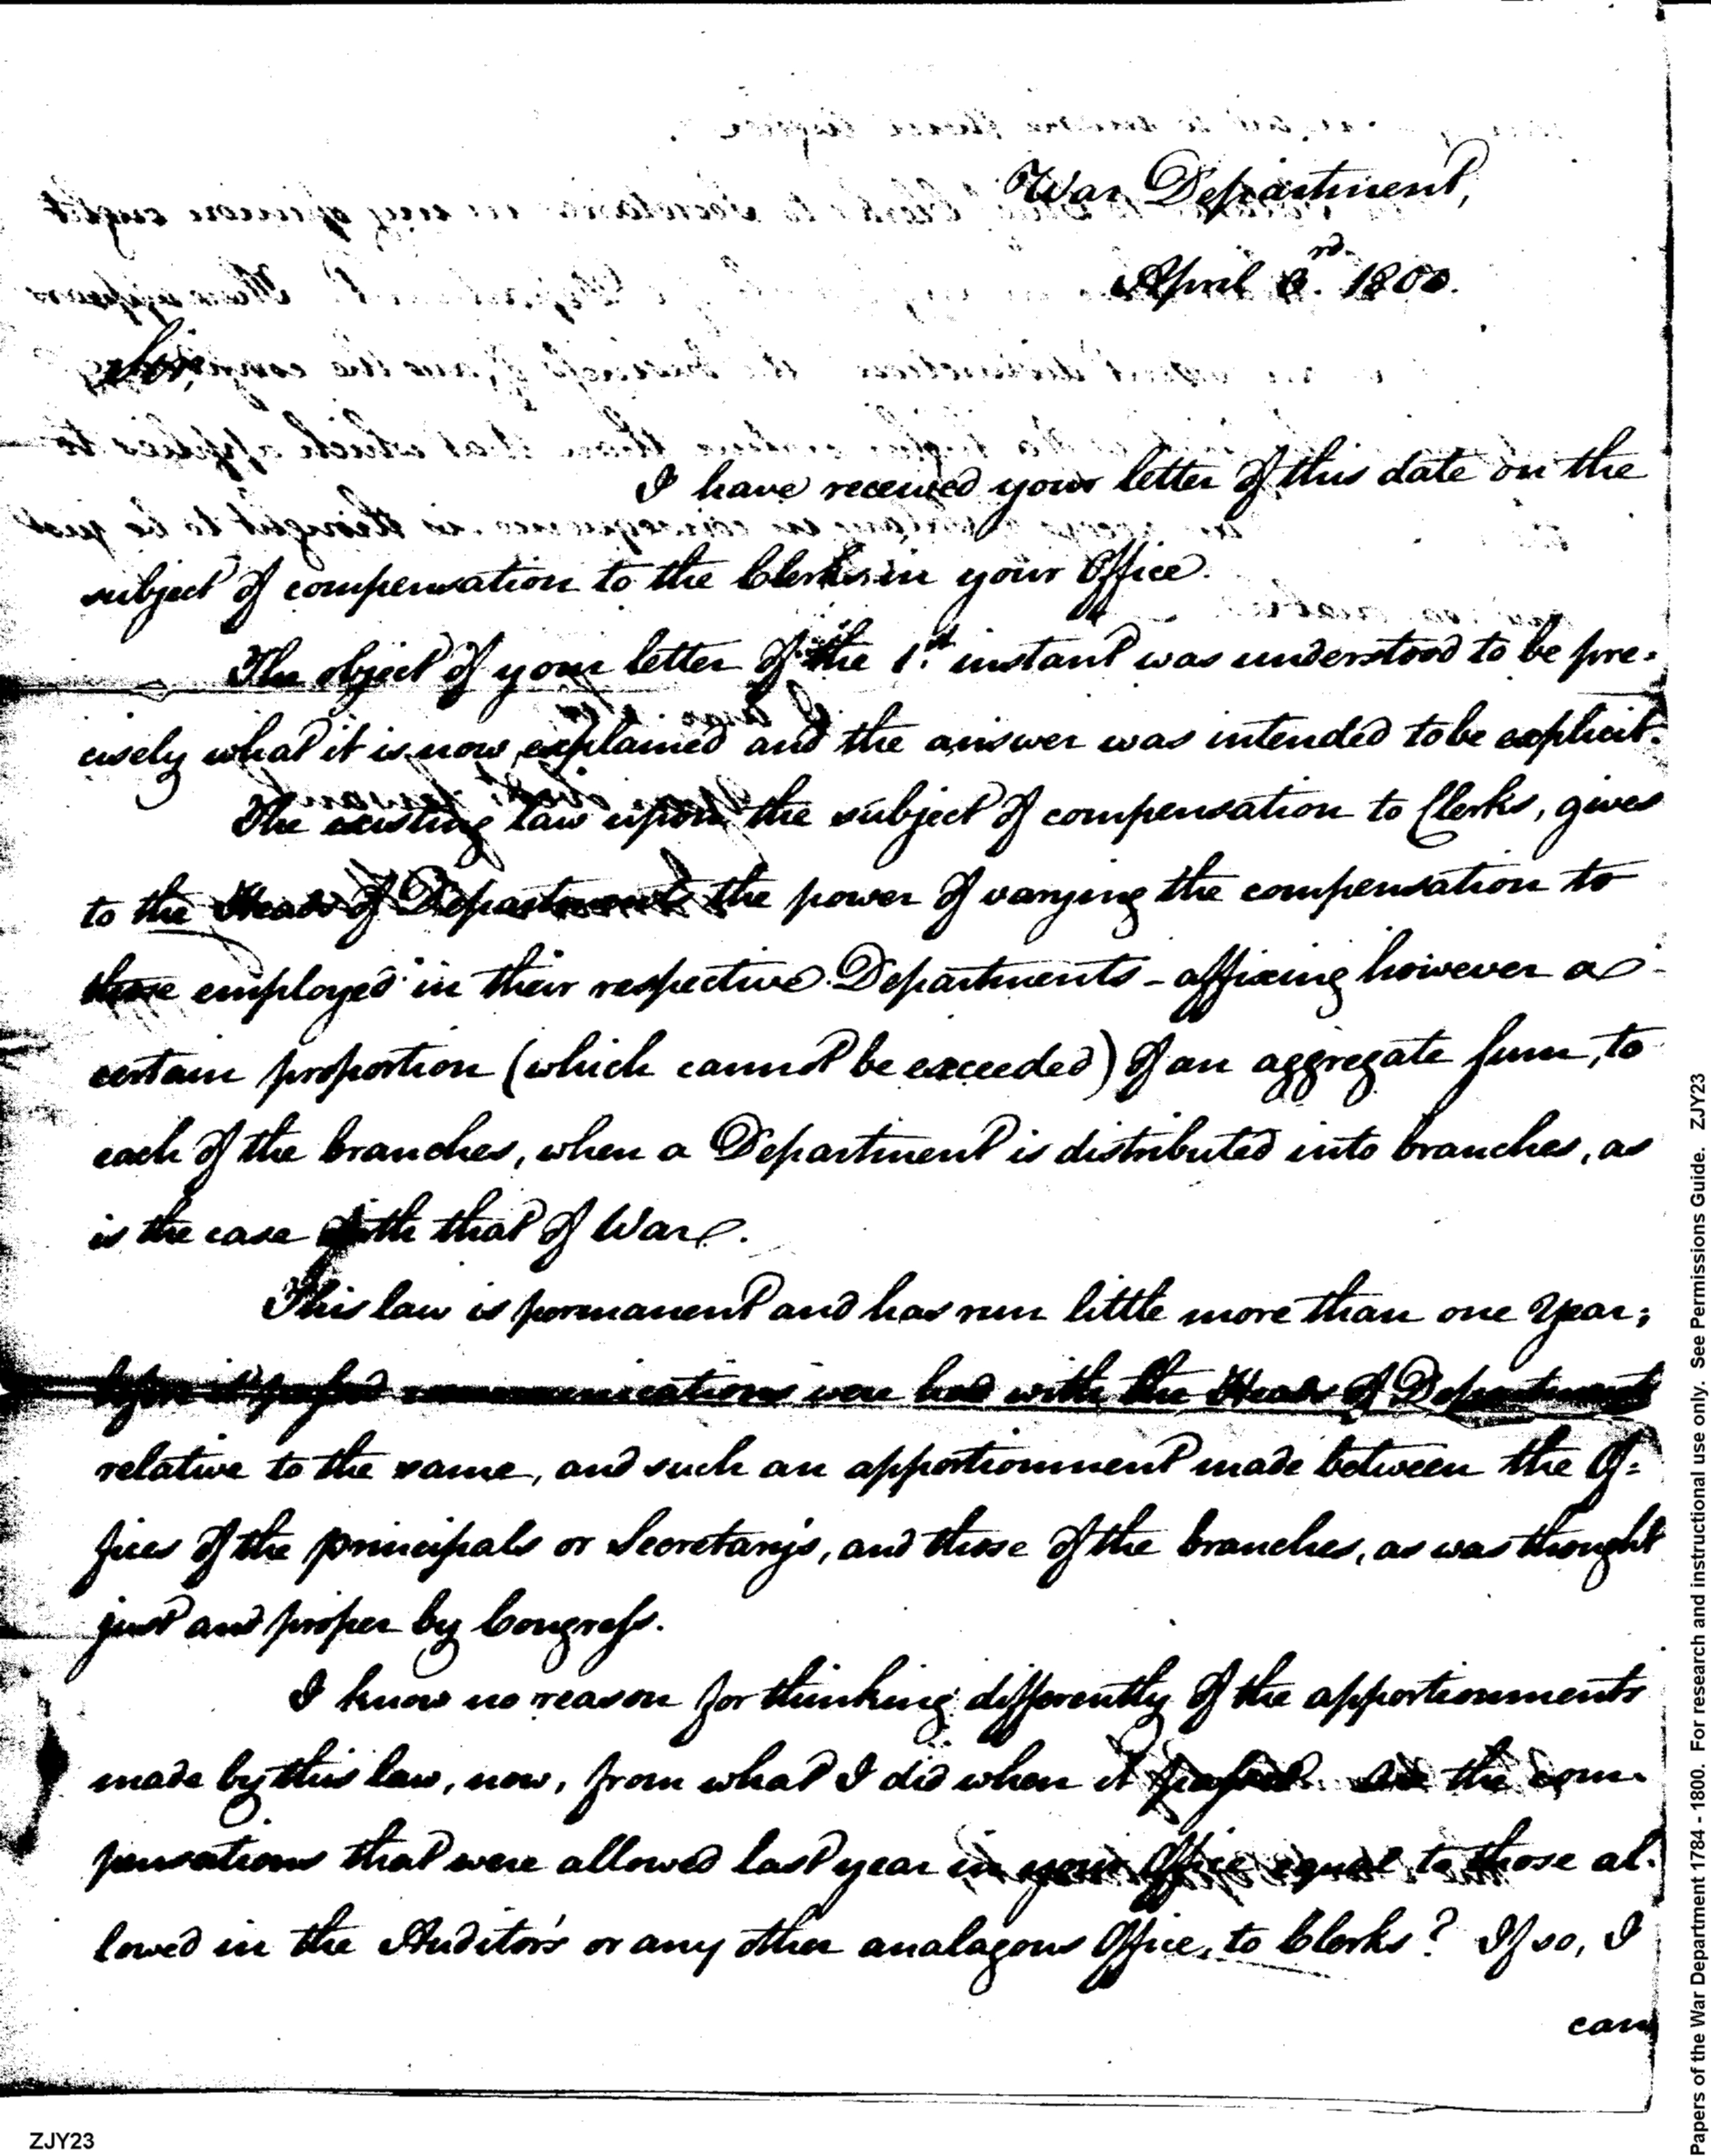 War Department,
April 3rd. 1800.
Sir,
I have received your letter of this date on the
subject of compensation to the Clerks in your Office.
The object of your letter of the 1st. instant was understood to be pre=
cisely what it is now explained and the answer was intended to be explicit.
The existing law upon the subject of compensation to Clerks, gives
to the Heads of Departments the power of varying the compensation to
those employed in their respective Departments - affixing however a
certain proportion (which cannot be exceeded) of an aggregate sum, to
each of the branches, when a Department is distributed into branches, as
is the case with that of War.
This law is permanent and has run little more than one Year;
before it passed communications were had with the Heads of Departments
relative to the same, and such an apportionment made between the Of=
fices of the principals or Secretarys, and those of the branches, as was thought
just and proper by Congress.
I know no reason for thinking differently of the apportionments
made by this law, now, from what I did when it passed. Are the com=
pensations that were allowed last year in your Office equal to those al=
lowed in the Auditor's or any other analagous Office, to Clerks? If so, I
can
Papers of the War Department 1784 - 1800. For research and instructional use only. See Permissions Guide. ZJY23
ZJY23